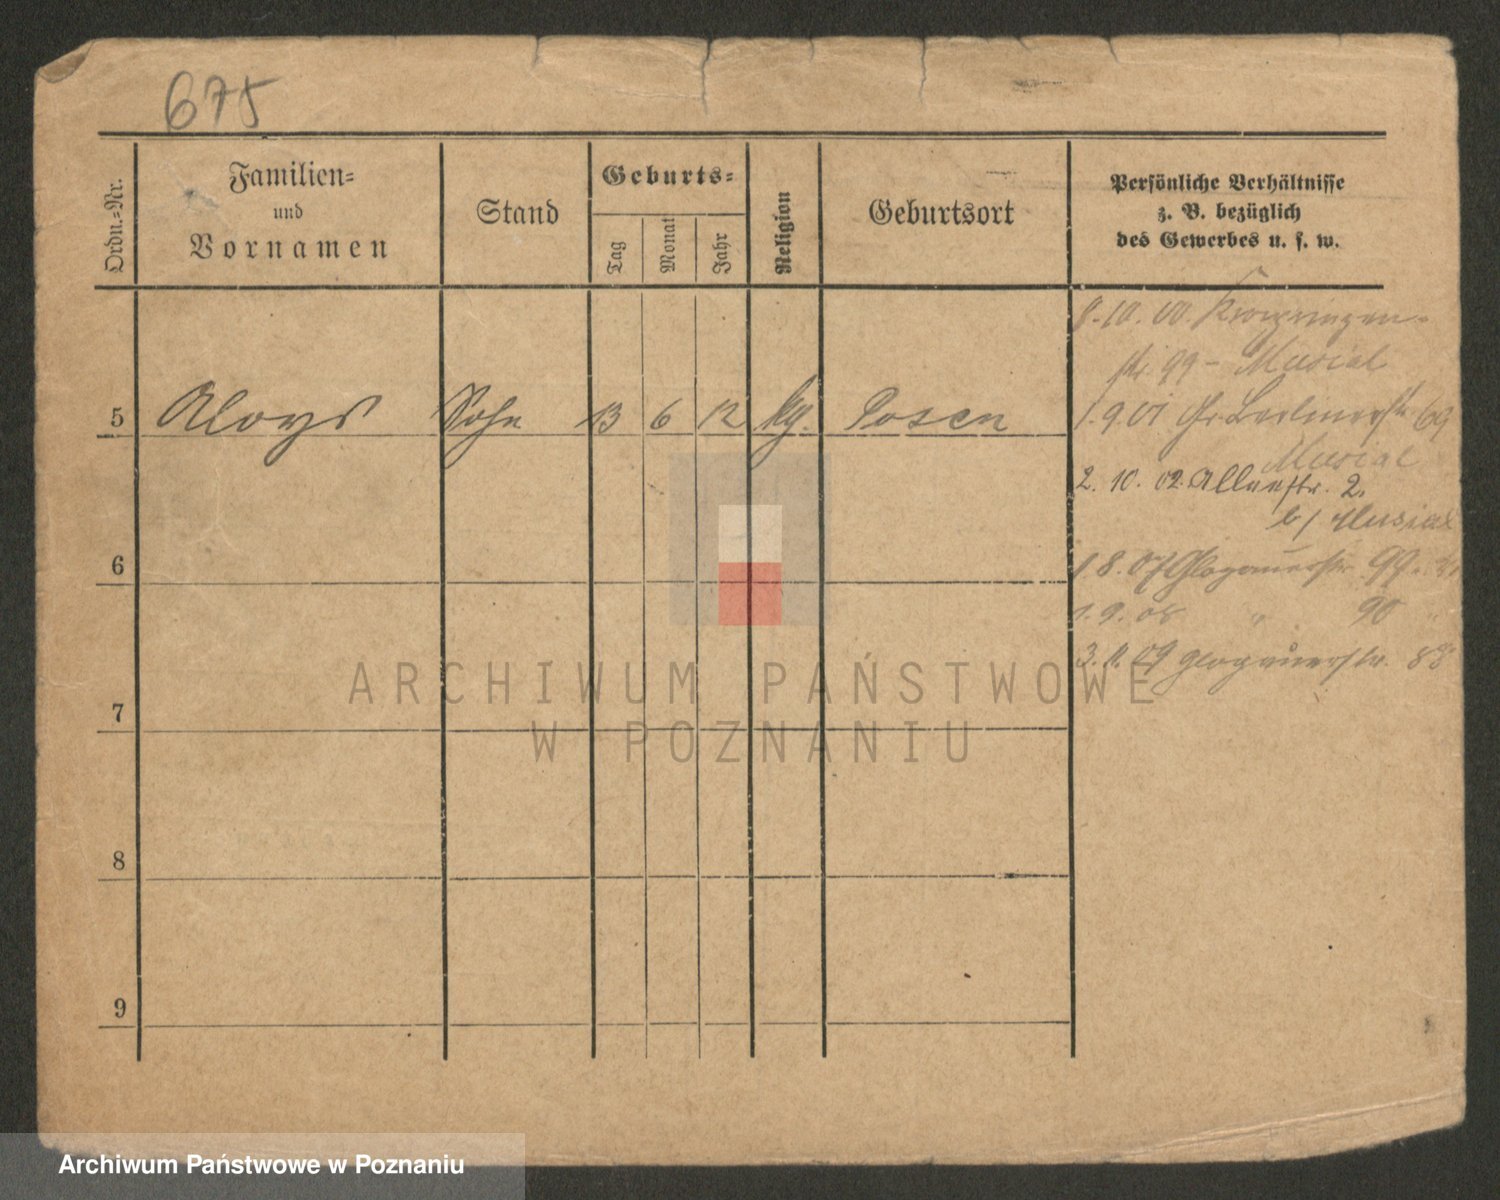 675
Ordn.-Nr.
Familien-
und
Vornamen
Stand
Geburts-
Tag
Monat
Jahr
Religion
Geburtsort
Persönliche Verhältnisse
z. B. bezüglich
des Gewerbes u. s. w.
5 Aloys Sohn 13 6 12 kg. Posen
6
7
8
9
8.10.00. Kronprinzen-
str. 99 - Musial
1.9.01 Gr. Berlinerstr. 69
Musial
2. 10. 02. Alleestr. 2.
b/ Musial
1.8.07 Glogauerstr. 99.
1.9.08 " 90 "
3.4.09 Glogauerstr. 88
ARCHIWUM PAŃSTWOWE
W POZNANIU
Archiwum Państwowe w Poznaniu